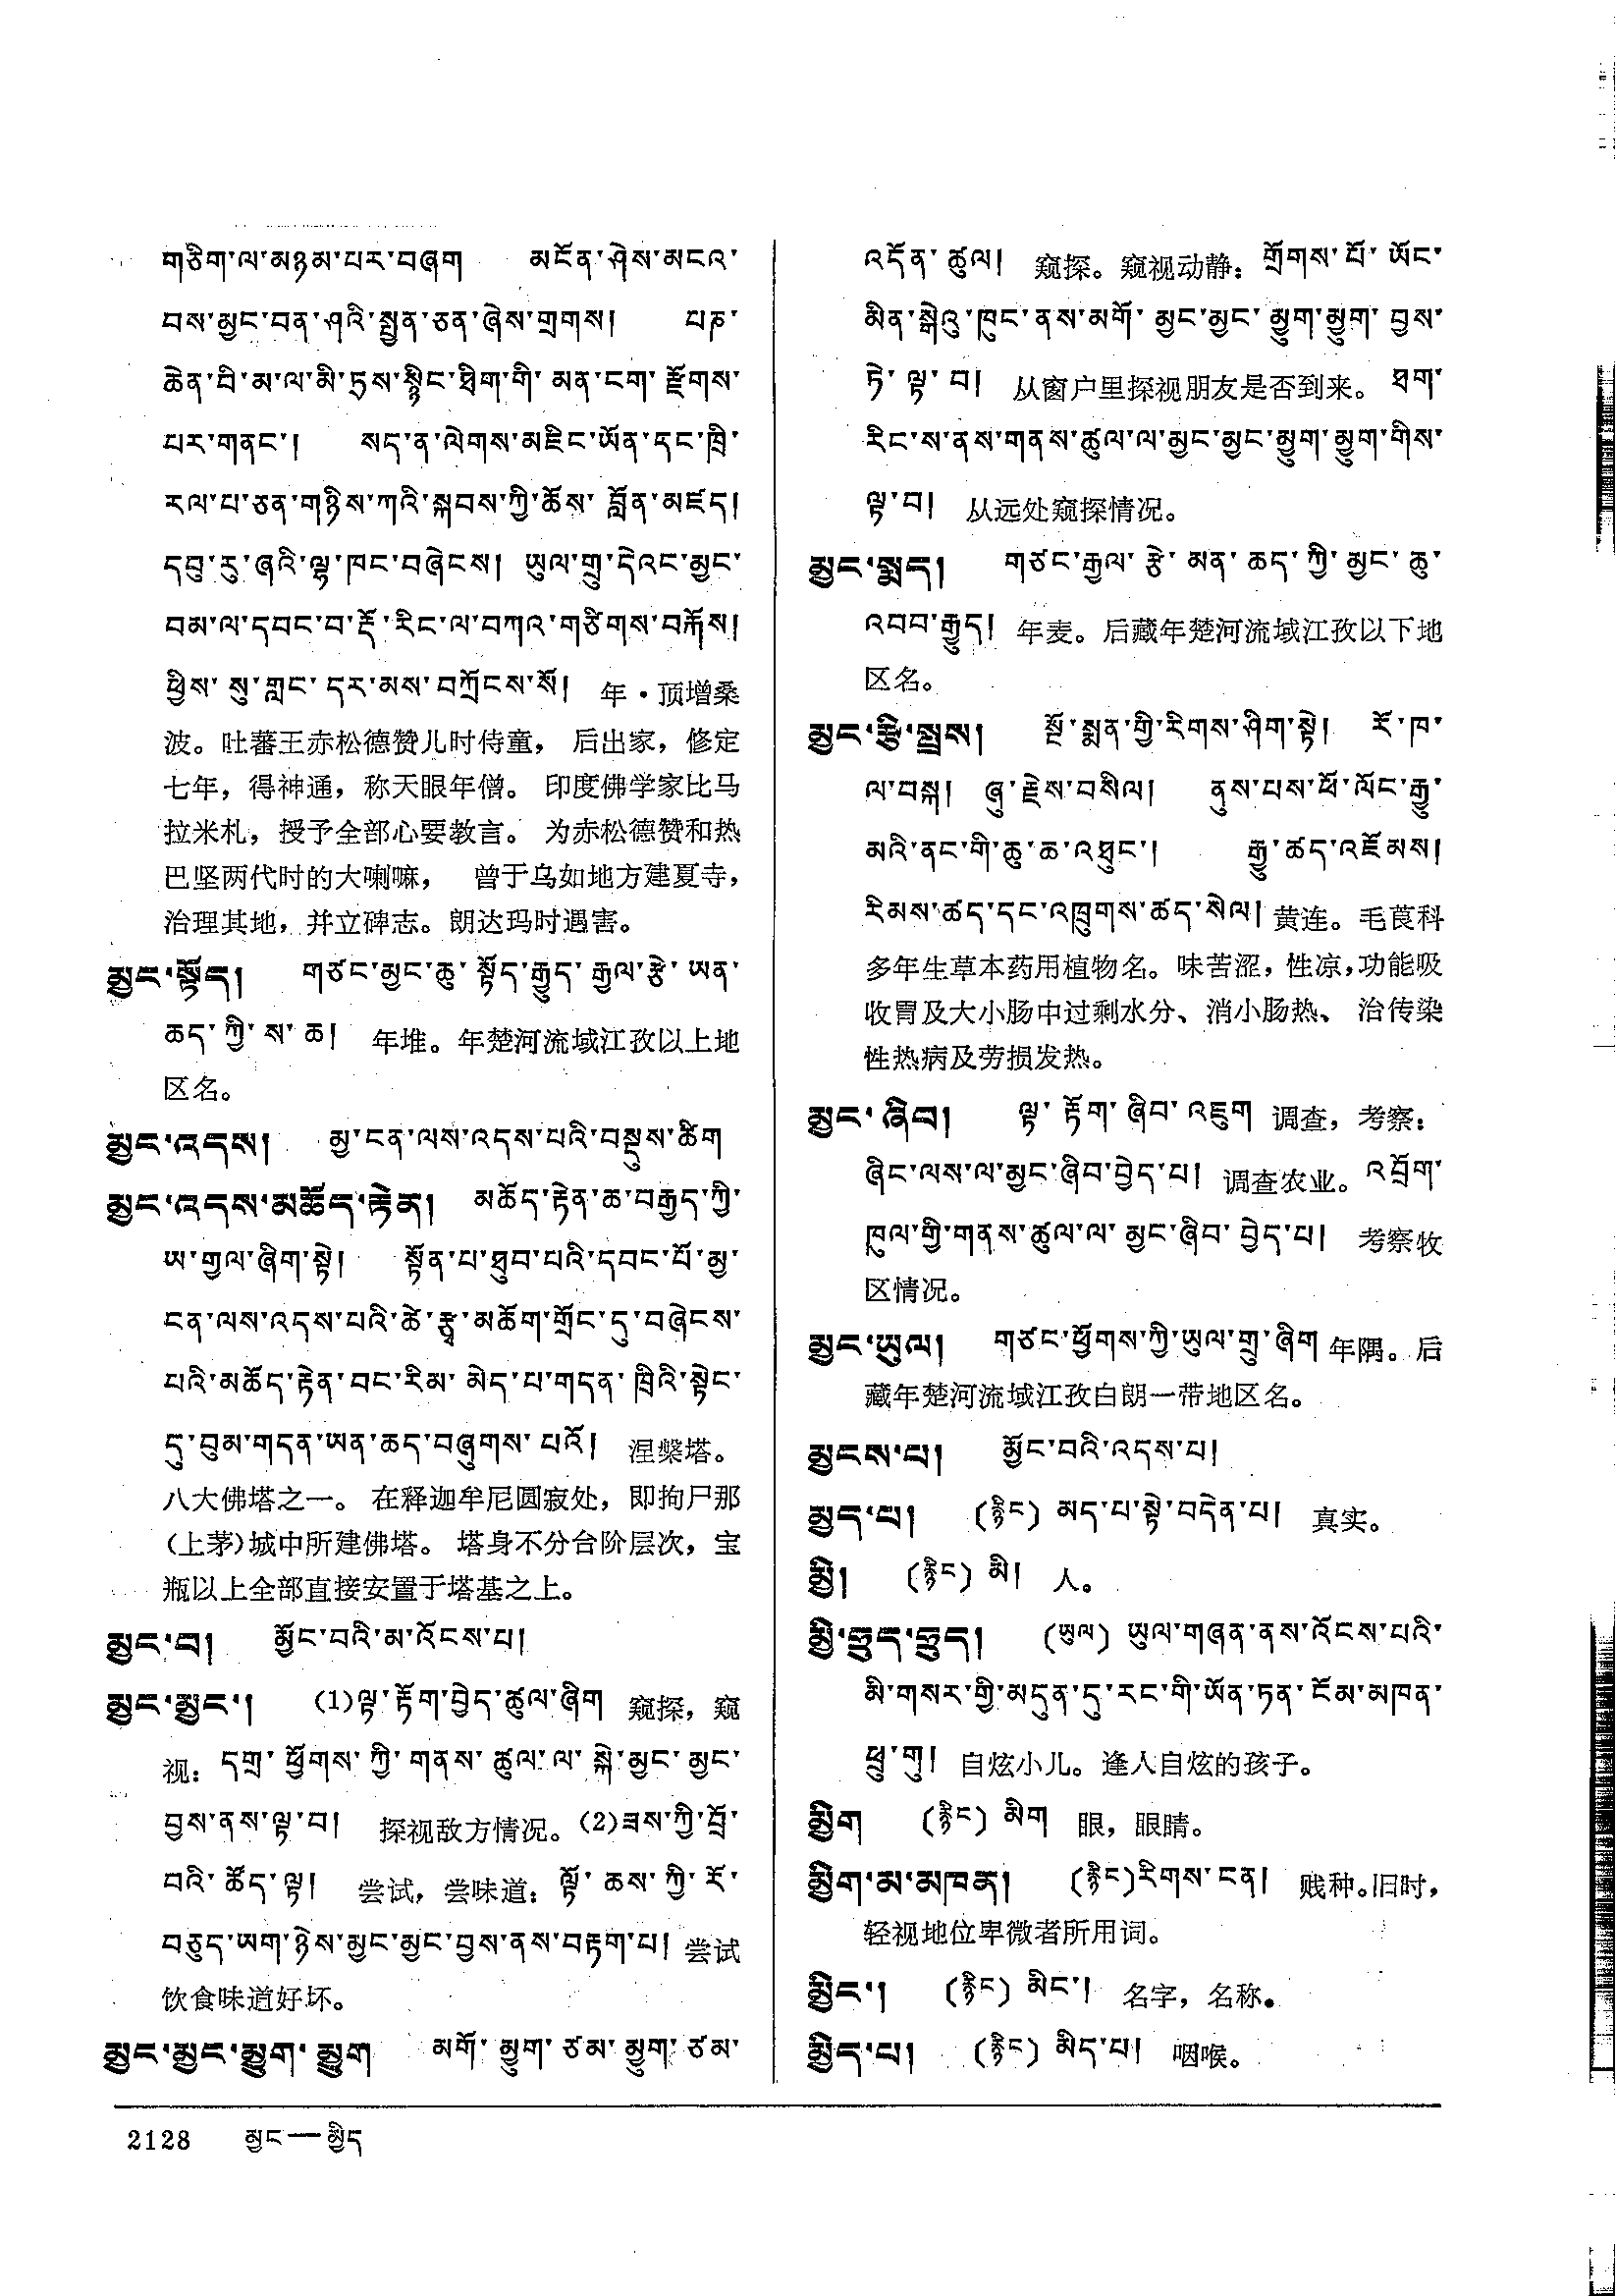 གཅིག་ལ་མཉམ་པར་བཞག མངོན་ཤེས་མངའ་
བས་མྱང་བན་ཤའི་སྤྱན་ཅན་ཞེས་གྲགས། པཎ་
ཆེན་བི་མ་ལ་མི་ཏྲས་སྙིང་ཐིག་གི་མན་ངག་རྫོགས་
པར་གནང་། སད་ན་ལེགས་མཇིང་ཡོན་དང་ཁྲི་
རལ་པ་ཅན་གཉིས་ཀའི་སྐབས་ཀྱི་ཆོས་བློན་མཛད།
དབུ་རུ་ཞའི་ལྷ་ཁང་བཞེངས། ཡུལ་གྲུ་དེའང་མྱང་
བམ་ལ་དབང་བ་རྡོ་རིང་ལ་བཀའ་གཙིགས་བརྐོས།
ཕྱིས་སུ་གླང་དར་མས་བཀྲོངས་སོ། 年·顶增桑
波。吐蕃王赤松德赞儿时侍童，后出家，修定
七年，得神通，称天眼年僧。印度佛学家比马
拉米札，授予全部心要教言。为赤松德赞和热
巴坚两代时的大喇嘛，曾于乌如地方建夏寺，
治理其地，并立碑志。朗达玛时遇害。
མྱང་སྟོད། གཙང་མྱང་ཆུ་སྟོད་རྒྱུད་རྒྱལ་རྩེ་ཡན་
ཆད་ཀྱི་ས་ཆ། 年堆。年楚河流域江孜以上地
区名。
མྱང་འདས། མྱ་ངན་ལས་འདས་པའི་བསྡུས་ཚིག
མྱང་འདས་མཆོད་རྟེན། མཆོད་རྟེན་ཆ་བརྒྱད་ཀྱི་
ཡ་གྱལ་ཞིག་སྟེ། སྟོན་པ་ཐུབ་པའི་དབང་པོ་མྱ་
ངན་ལས་འདས་པའི་ཚེ་རྩྭ་མཆོག་གྲོང་དུ་བཞེངས་
པའི་མཆོད་རྟེན་བང་རིམ་མེད་པ་གདན་ཁྲིའི་སྟེང་
དུ་བུམ་གདན་ཡན་ཆད་བཞུགས་པའོ། 涅槃塔。
八大佛塔之一。在释迦牟尼圆寂处，即拘尸那
(上茅)城中所建佛塔。塔身不分台阶层次，宝
瓶以上全部直接安置于塔基之上。
མྱང་བ། མྱོང་བའི་མ་འོངས་པ།
མྱང་མྱང་། (1)ལྟ་རྟོག་བྱེད་ཚུལ་ཞིག 窥探，窥
视：དགྲ་ཕྱོགས་ཀྱི་གནས་ཚུལ་ལ་སྐེ་མྱང་མྱང་
བྱས་ནས་ལྟ་བ། 探视敌方情况。(2)ཟས་ཀྱི་བྲོ་
བའི་ཚོད་ལྟ། 尝试，尝味道：ལྟོ་ཆས་ཀྱི་རོ་
བཅུད་ཡག་ཉེས་མྱང་མྱང་བྱས་ནས་བརྟག་པ། 尝试
饮食味道好坏。
མྱང་མྱང་མྱུག་མྱུག མགོ་མྱུག་ཙམ་མྱུག་ཙམ་
འདོན་ཚུལ། 窥探。窥视动静：གྲོགས་པོ་ཡོང་
མིན་སྒེའུ་ཁུང་ནས་མགོ་མྱང་མྱང་མྱུག་མྱུག་བྱས་
ཏེ་ལྟ་བ། 从窗户里探视朋友是否到来。ཐག་
རིང་ས་ནས་གནས་ཚུལ་ལ་མྱང་མྱང་མྱུག་མྱུག་གིས་
ལྟ་བ། 从远处窥探情况。
མྱང་སྨད། གཙང་རྒྱལ་རྩེ་མན་ཆད་ཀྱི་མྱང་ཆུ་
འབབ་རྒྱུད། 年麦。后藏年楚河流域江孜以下地
区名。
མྱང་རྩི་སྤྲས། སྔོ་སྨན་གྱི་རིགས་ཤིག་སྟེ། རོ་ཁ་
ལ་བསྐ། ཞུ་རྗེས་བསིལ། ནུས་པས་ཕོ་ལོང་རྒྱུ་
མའི་ནང་གི་ཆུ་ཆ་འཐུང་། རྒྱུ་ཚད་འཇོམས།
རིམས་ཚད་དང་འཁྲུགས་ཚད་སེལ། 黄连。毛茛科
多年生草本药用植物名。味苦涩，性凉，功能吸
收胃及大小肠中过剩水分、消小肠热、治传染
性热病及劳损发热。
མྱང་ཞིབ། ལྟ་རྟོག་ཞིབ་འཇུག 调查，考察：
ཞིང་ལས་ལ་མྱང་ཞིབ་བྱེད་པ། 调查农业。འབྲོག་
ཁུལ་གྱི་གནས་ཚུལ་ལ་མྱང་ཞིབ་བྱེད་པ། 考察牧
区情况。
མྱང་ཡུལ། གཙང་ཕྱོགས་ཀྱི་ཡུལ་གྲུ་ཞིག 年隅。后
藏年楚河流域江孜白朗一带地区名。
མྱངས་པ། མྱོང་བའི་འདས་པ།
མྱད་པ། (རྙིང) མད་པ་སྟེ་བདེན་པ། 真实。
མྱི། (རྙིང) མི། 人。
མྱི་ཧྲུད་ཧྲུད། (ཡུལ) ཡུལ་གཞན་ནས་འོངས་པའི་
མི་གསར་གྱི་མདུན་དུ་རང་གི་ཡོན་ཏན་ངོམ་མཁན་
ཕྲུ་གུ། 自炫小儿。逢人自炫的孩子。
མྱིག (རྙིང) མིག 眼，眼睛。
མྱིག་མ་མཁན། (རྙིང)རིགས་ངན། 贱种。旧时，
轻视地位卑微者所用词。
མྱིང་། (རྙིང) མིང་། 名字，名称。
མྱིད་པ། (རྙིང) མིད་པ། 咽喉。
2128 མྱང—མྱིད